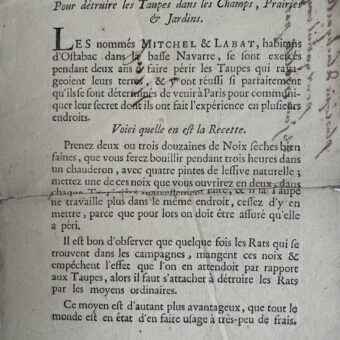 Pour détruire les Taupes dans les Champs, Prairies
& Jardins.
LES nommés MITCHEL & LABAT, habitans
d'Ostabac dans la basse Navarre, se sont exercés
pendant deux ans à faire périr les Taupes qui rava-
geoient leur terres, & y ont réussi si parfaitement
qu'ils se sont déterminés de venir à Paris pour communi-
quer leur secret dont ils ont fait l'expérience en plusieurs
endroits.
Voici quelle en est la Recette.
Prenez deux ou trois douzaines de Noix sèches bien
saines, que vous ferez bouillir pendant trois heures dans
un chauderon, avec quatre pintes de lessive naturelle;
mettez une de ces noix que vous ouvrirez en deux, dans
chaque Taupinière nouvellement faite, & si la Taupe
ne travaille plus dans le même endroit, cessez d'y en
mettre, parce que pour lors on doit être assuré qu'elle
a péri.
Il est bon d'observer que quelque fois les Rats qui se
trouvent dans les campagnes, mangent ces noix &
empêchent l'effet que l'on en attendoit par rapport
aux Taupes, alors il faut s'attacher à détruire les Rats
par les moyens ordinaires.
Ce moyen est d'autant plus avantageux, que tout le
monde est en état d'en faire usage à très-peu de frais.